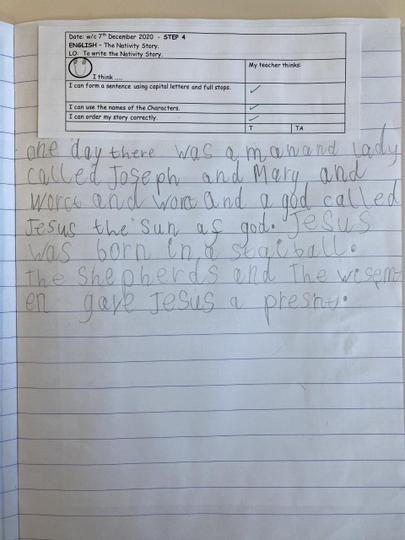 Date: w/c 7th December 2020 - STEP 4
ENGLISH – The Nativity Story.
LO: To write the Nativity Story.
I think ....
My teacher thinks:
I can form a sentence using capital letters and full stops.
I can use the names of the Characters.
I can order my story correctly.
T TA
one day there was a man and lady
called Joseph and Mary and
worct and word and a god called
Jesus the sun of god. Jesus
was born in a
The Shepherds and The wisem
en gave Jesus a presnt.